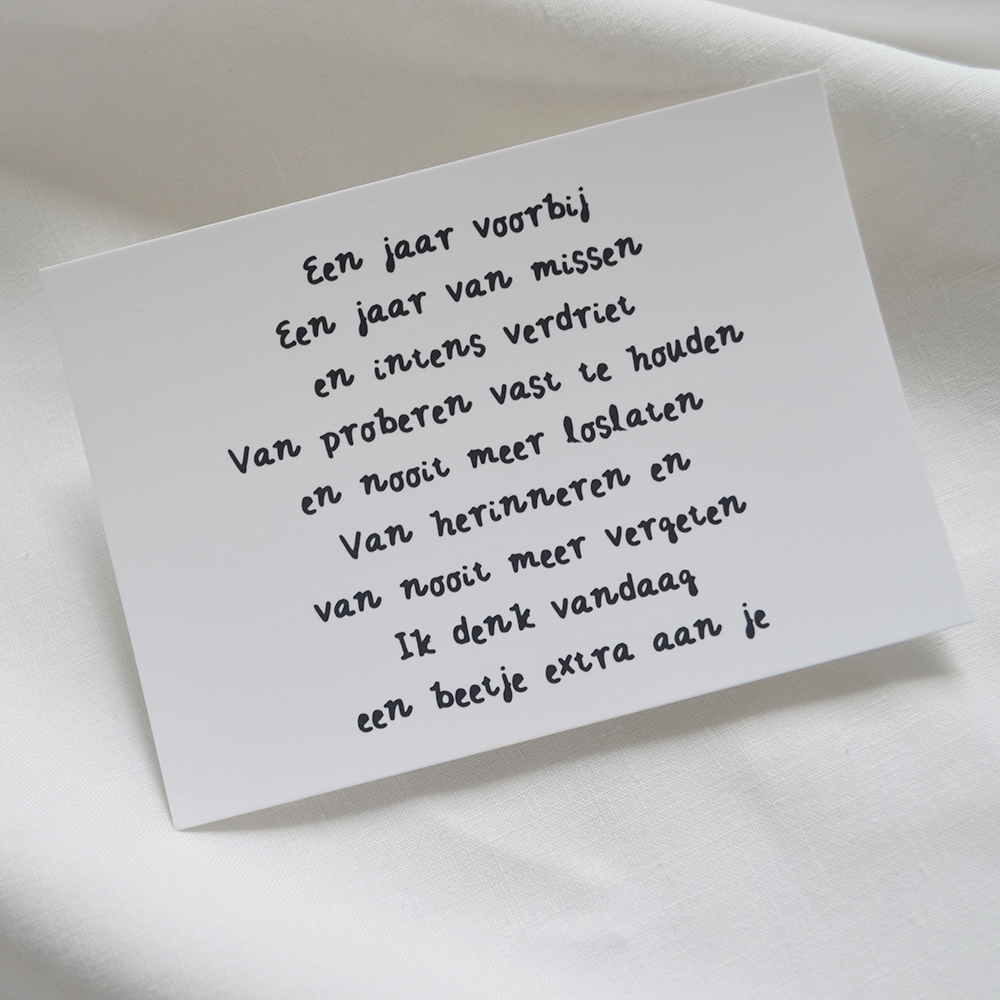 Een jaar voorbij
Een jaar van missen
en intens verdriet
Van proberen vast te houden
en nooit meer loslaten
Van herinneren en
van nooit meer vergeten
Ik denk vandaag
een beetje extra aan je